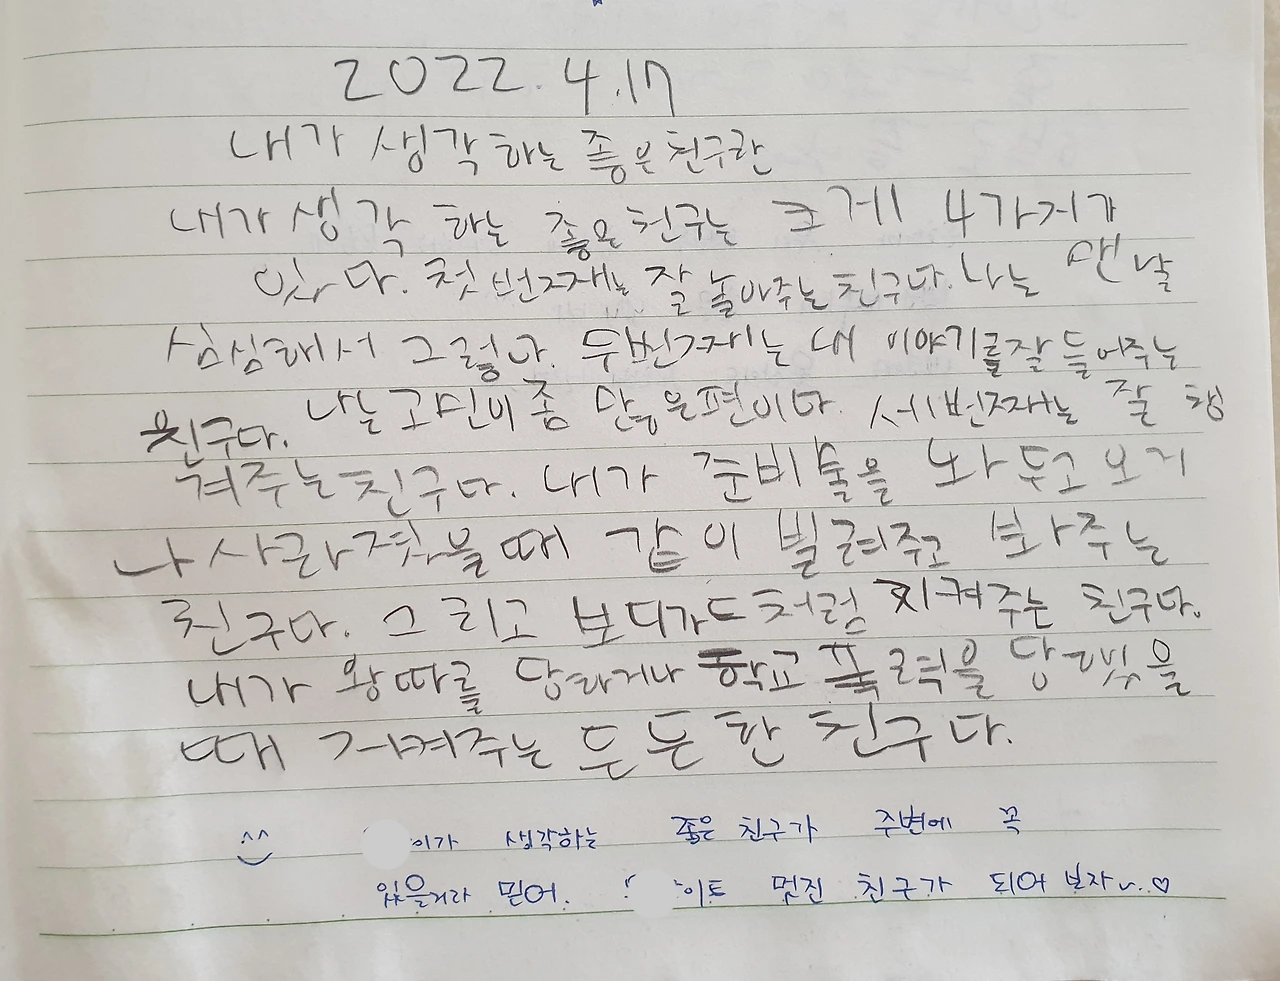 2022.4.17
내가 생각하는 좋은친구란
내가생각하는 좋은친구는 크게 4가지가
있다. 첫번째는 잘 놀아주는친구다. 나는 맨날
심심해서 그렇다. 두번째는 내 이야기를잘들어주는
친구다. 나는고민이좀 많은편이다. 세번째는 잘 챙
겨주는친구다. 내가 준비물을 놔두고 오거
나사라졌을때 같이 빌려주고 봐주는
친구다. 그리고 보디가드처럼 지켜주는 친구다.
내가 왕따를 당하거나 학교 폭력을 당했을
때 지켜주는 든든한 친구다.
^^ 이가 생각하는 좋은 친구가 주변에 꼭
있을거라 믿어. 이도 멋진 친구가 되어 보자~..♡